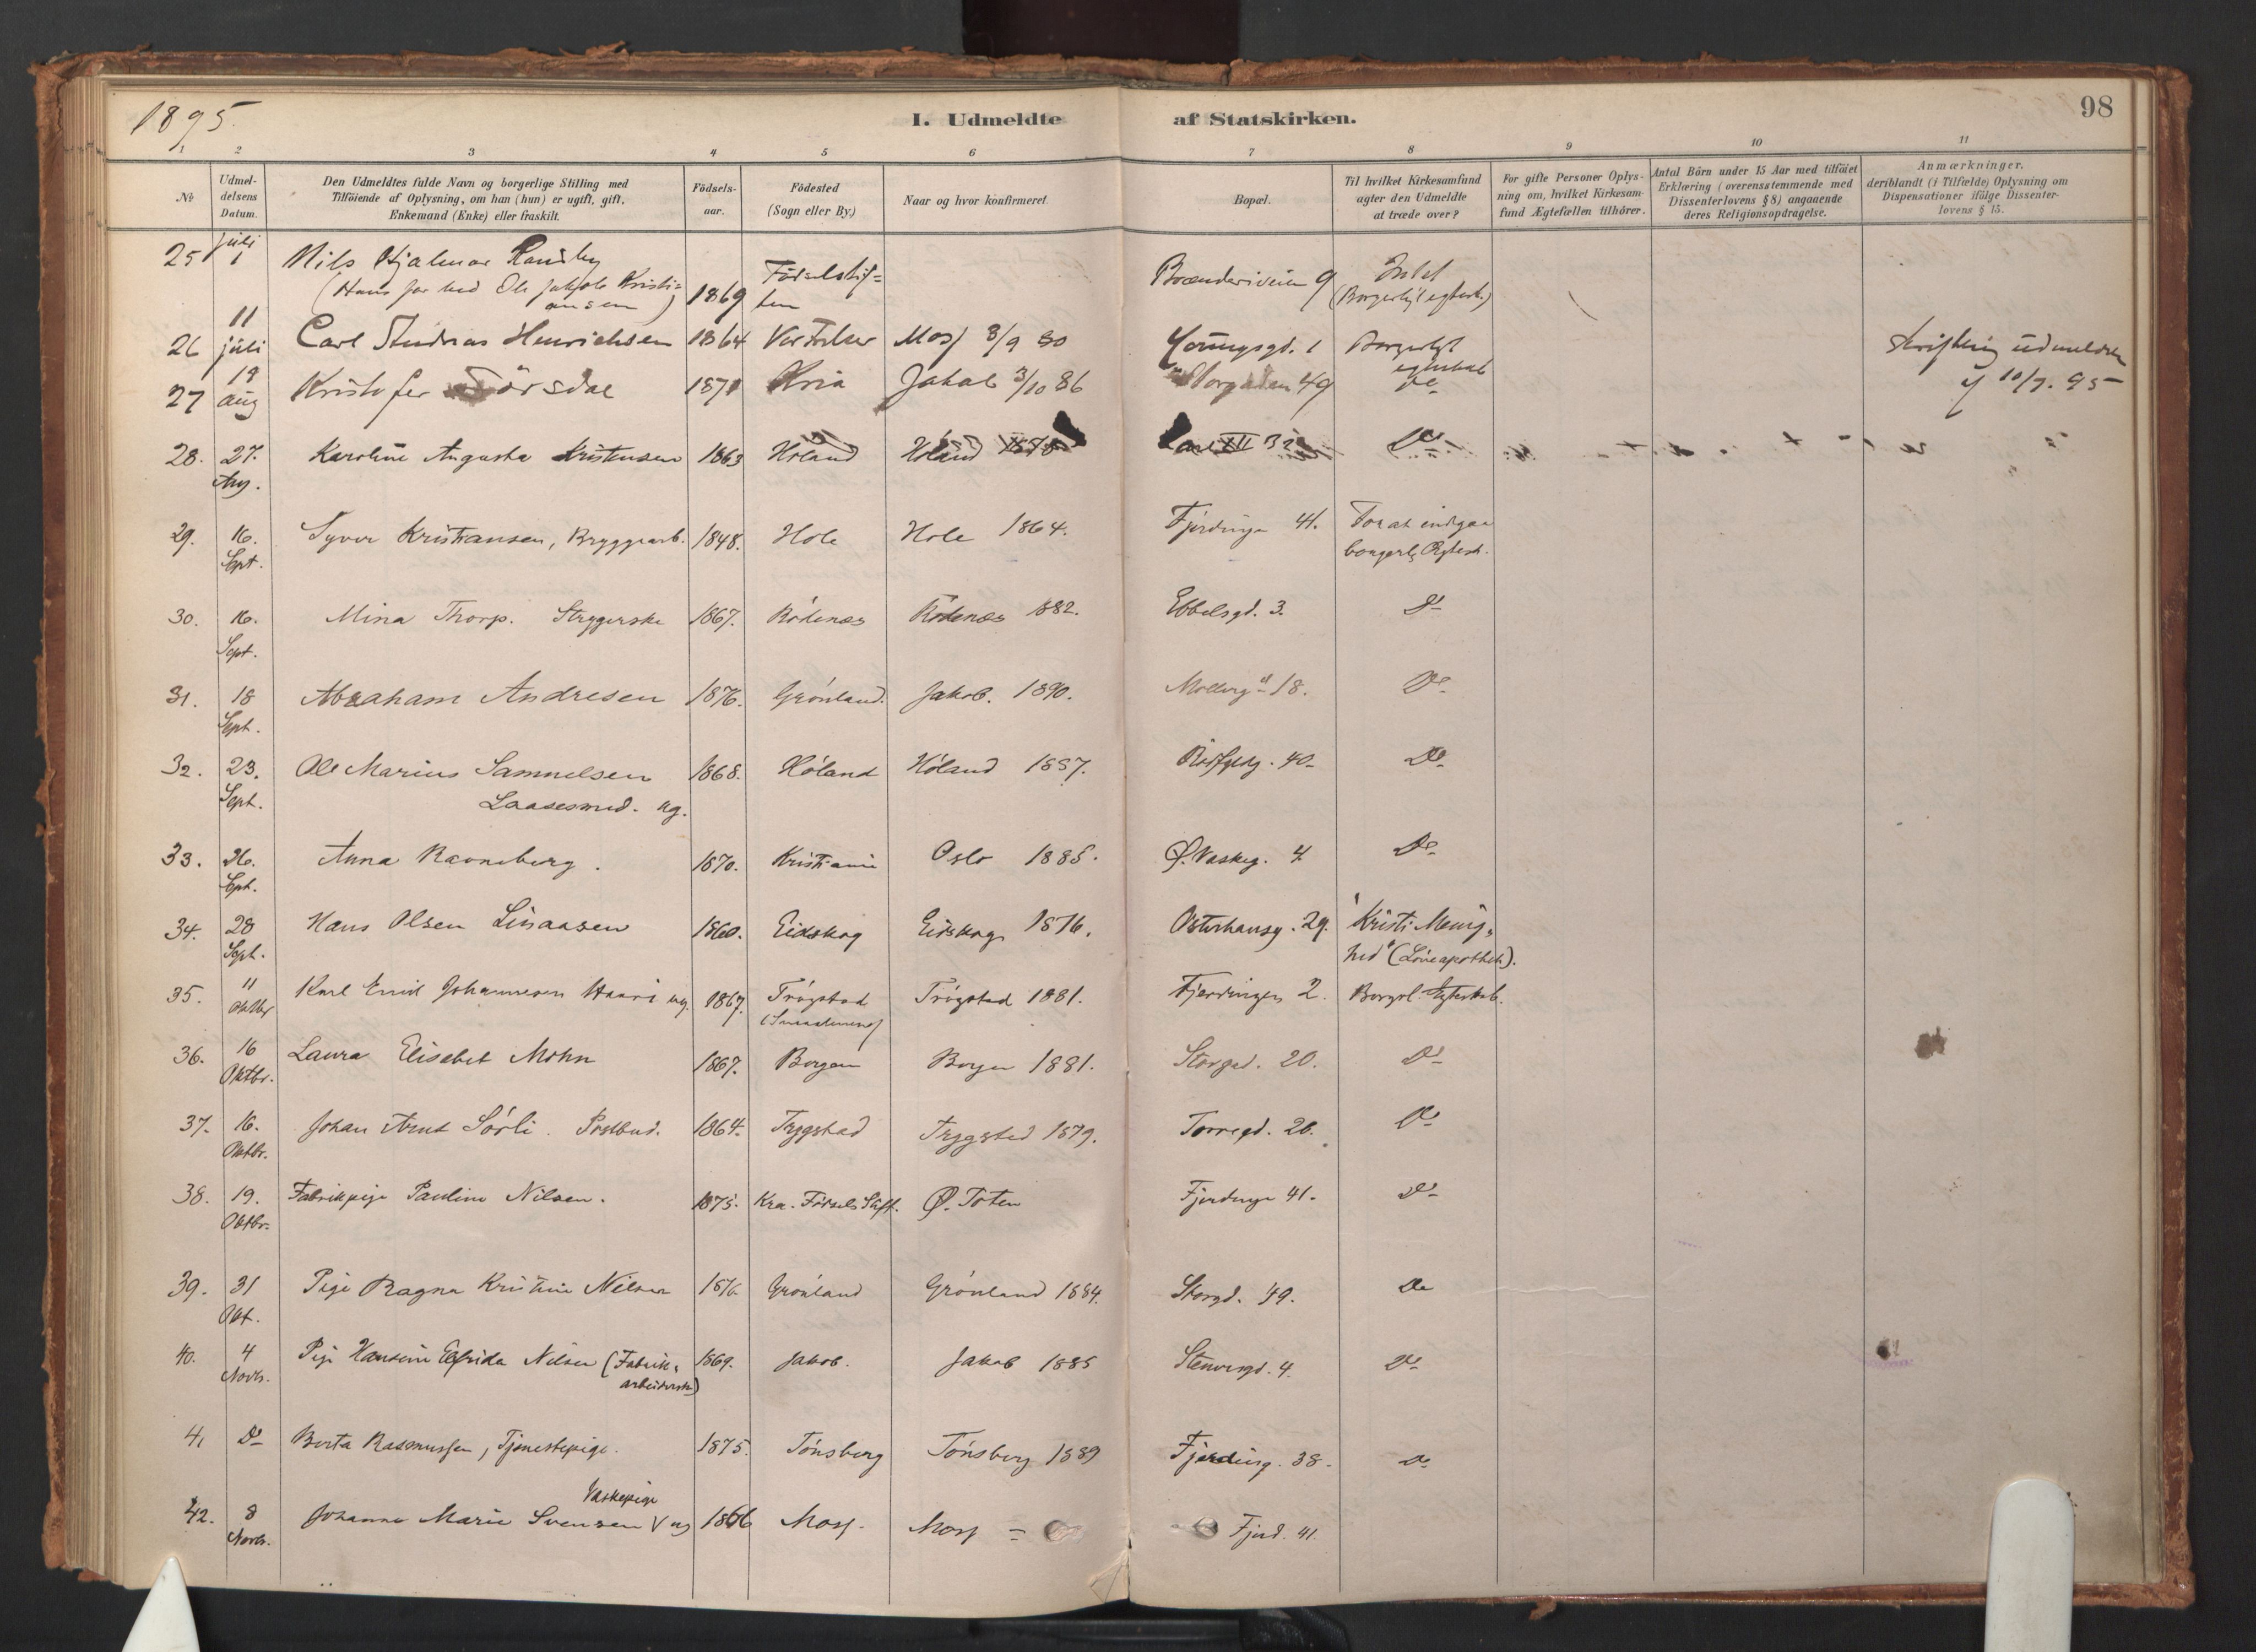 1895.
I. Udmeldte af Statskirken. 98
1 2 3 4 5 6 7 8 9 10 11
№ Udmel-delsens Datum. Den Udmeldtes fulde Navn og borgerlige Stilling med Tilföiende af Oplysning, om han (hun) er ugift, gift, Enkemand (Enke) eller fraskilt. Födsels-aar. Födested (Sogn eller By.) Naar og hvor konfirmeret. Bopæl. Til hvilket Kirkesamfund agter den Udmeldte at træde over? For gifte Personer Oplys-ning om, hvilket Kirkesam-fund Ægtefællen tilhörer. Antal Börn under 15 Aar med tilföiet Erklæring (overensstemmende med Dissenterlovens § 8) angaaende deres Religionsopdragelse. Anmærkninger. deriblandt (i Tilfælde) Oplysning om Dispensationer ifölge Dissenter-lovens § 15.
25 juli 1 Nils Hjalmar
(Hans far hed Ole Jakob Kristi=
ansen) 1869 Födselsstif=
ten Brænderiveien 9 Intet
(Borgerligt egtesk.)
26 11 juli Carl Andreas Henrichsen 1864 Moss 3/9 80 1 Borgerligt
egteskab Skriftlig udmeldes
10/7. 95
27 19 aug Kristofer 1871 Kria Jakob 3/10 86 Storgaden 49 Do
28. 27. Aug. Karoline Augusta Kristensen 1863 Höland Höland 1878 Do
29. 16. Sept. Syver Kristiansen, Bryggearb. 1848. Hole Hole 1864. Fjerdinge 41. For at indgaa
borgerl. Ægtesk.
30. 16. Sept. Mina Thorp. Strygerske 1867. Rödenæs Rödenæs 1882. Ebbelsgd. 3. Do
31. 18 Sept. Abraham Andresen 1876. Grönland. Jakob. 1890. Mollerg 18. Do
32. 23. Sept. Ole Marius Samuelsen
Laasesmed. ug. 1868. Höland Höland 1887. 40. Do
33. 26. Sept. Anna Ravneberg. 1870. Kristiania Oslo 1885. Ø. Vaskeg. 4 Do
34. 28 Sept. Hans Olsen Linaasen 1860. Eidskog Eidskog 1876. Osterhausg. 29. Kristi Menig=
hed (Löveapothek).
35. 11 Oktbr Karl Emil Johannesen ug. 1867. Trögstad Trögstad 1881. Fjerdingen 2. Borgerl. Egteskab.
36. 16 Oktbr. Laura Elisabet Mohn 1867. Bergen Bergen 1881. Storgad. 20. Do
37. 16. Oktbr. Johan Arnt Sörli. Postbud. 1864. Trygstad Trygstad 1879. Torvegd. 20. Do
38. 19. Oktbr. Fabrikpige Pauline Nilsen. 1875. Kra. Födsels Stift. Ø. Toten Fjerdinge 41. Do
39. 31 Okt. Pige Ragna Kristine Nilsen 1876 Grönland Grönland 1884. Storgd. 49. Do
40. 4 Novb. Pige Hansine Elfrida Nilsen (Fabrik=
arbeiderske) 1869. Jakob. Jakob 1885 Stenersgd. 4. Do
41 Do Berta Rasmussen, Tjenestepige. 1875. Tönsberg Tönsberg 1889 Fjerding. 38. Do
42. 8 Novb. Johanne Marie Svensen Vaskepige ug 1866 Moss. Moss = Fjerd. 41